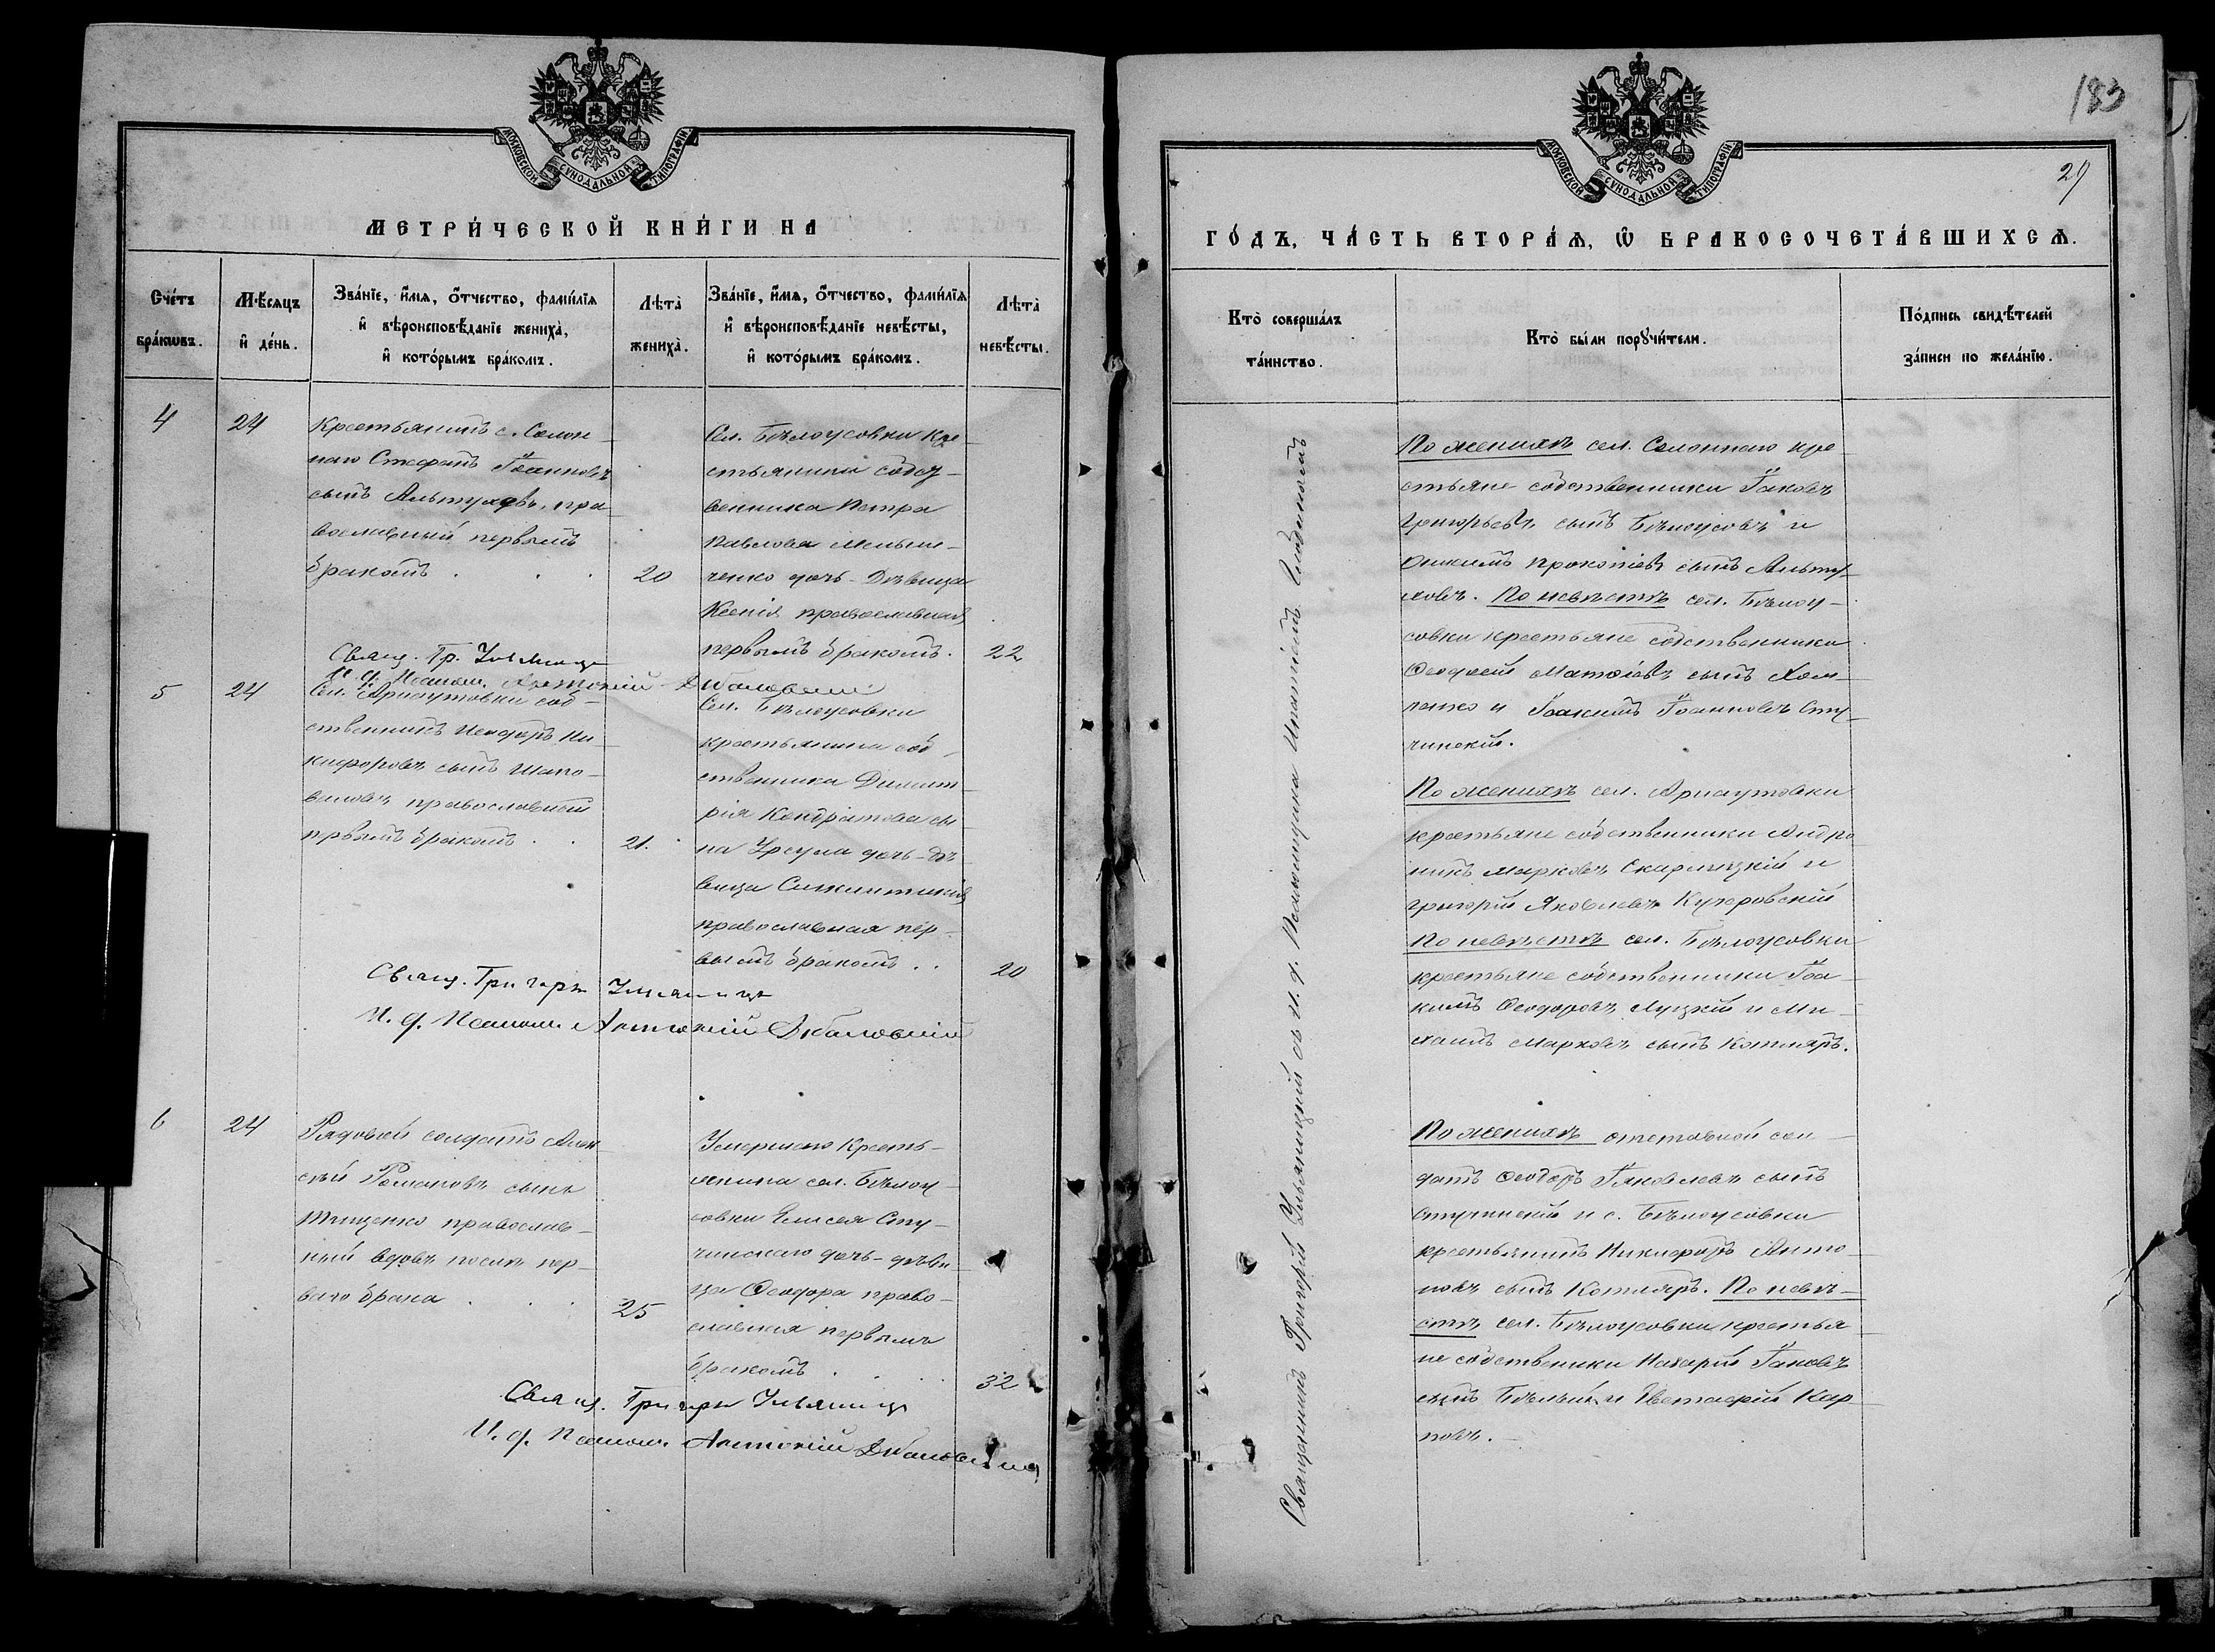 МОСКОВСКОЙ СѴНОДАЛЬНОЙ ТИПОГРАФІИ
МЕТРИ́ЧЕСКОЙ КНИ́ГИ НА
Сче́тъ бра́ковъ.
Мѣ́сяцъ и҆ де́нь.
Зва́нїе, и҆́мѧ, ѻ҆́тчество, фами́лїѧ
и҆ вѣроисповѣ́данїе жениха̀,
и҆ кото́рымъ бра́комъ.
Лѣта̀ жениха̀.
Зва́нїе, и҆́мѧ, ѻ҆́тчество, фами́лїѧ
и҆ вѣроисповѣ́данїе невѣ́сты,
и҆ кото́рымъ бра́комъ.
Лѣта̀ невѣ́сты.
4
24
Крестьянинъ с. Солон-
наго Стефанъ Іоанновъ
сынъ Алтуховъ, пра-
вославный первымъ
бракомъ . . . 20
Сел. Бѣлоусовки кре-
стьянина собст-
венника Петра
Павлова Мельни-
ченко дочь - Дѣвица
Ксенія православная,
первымъ бракомъ. 22
Свящ. Гр. Ульяницк
И. д. Псалом. Антоній
5
24
Сел. Арнаутовки соб-
ственникъ Исидоръ Ни-
кифоровъ сынъ Шапо-
валовъ православный
первымъ бракомъ . . 21.
Сел. Бѣлоусовки
крестьянина соб-
ственника Димит-
рія Кондратова сы-
на Урсула дочь - дѣ-
вица Синклитикія
православная пер-
вымъ бракомъ . . 20
Свящ. Григорій Ульяницк
И. д. Псалом. Антоній
6
24
Рядовой солдатъ Алек-
сѣй Романовъ сынъ
Тищенко православ-
ный вдовъ послѣ пер-
ваго брака . . . 25
Умершаго Кресть-
янина сел. Бѣлоу-
совки Елисея Сту-
чинскаго дочь - дѣви-
ца Ѳеодора право-
славная первымъ
бракомъ . . . 32
Свящ. Григорій Ульяницк
И. д. Псалом. Антоній
183
МОСКОВСКОЙ СѴНОДАЛЬНОЙ ТИПОГРАФІИ
29
ГО́ДЪ, ЧА́СТЬ ВТОРА́Ѧ, Ѡ҆ БРАКОСОЧЕТА́ВШИХСѦ.
Кто̀ соверша́лъ
та́инство.
Кто̀ бы́ли порꙋчи́тели.
По́дпись свидѣ́телей
за́писи по жела́нїю.
Священникъ Григорій Ульяницкій съ и. д. Псаломщика
По женихѣ сел. Солоннаго кре-
стьяне собственники Іаковъ
Григорьевъ сынъ Бѣлоусовъ и
Онисимъ Прокопіевъ сынъ Алту-
ховъ. По невѣстѣ сел. Бѣлоу-
совки крестьяне собственники
Ѳеодосій Матѳіевъ сынъ Хом-
ченко и Іоакимъ Іоанновъ Сту-
чинскій.
По женихѣ сел. Арнаутовки
крестьяне собственники Андро-
никъ Марковъ Скарлицкій и
Григорій Яковлевъ Кучеровскій
По невѣстѣ сел. Бѣлоусовки
крестьяне собственники Іоа-
кимъ Ѳеодоровъ Луцкій и Ми-
хаилъ Марковъ сынъ Котляръ.
По женихѣ отставной сол-
датъ Ѳеодоръ Іяковлевъ сынъ
Стучинскій и с. Бѣлоусовки
крестьянинъ Никифоръ Анто-
новъ сынъ Котляръ. По невѣ-
стѣ сел. Бѣлоусовки крестья-
не собственики Назарій Іаковъ
сынъ Бѣлый и Евстафій Кар-
повъ.